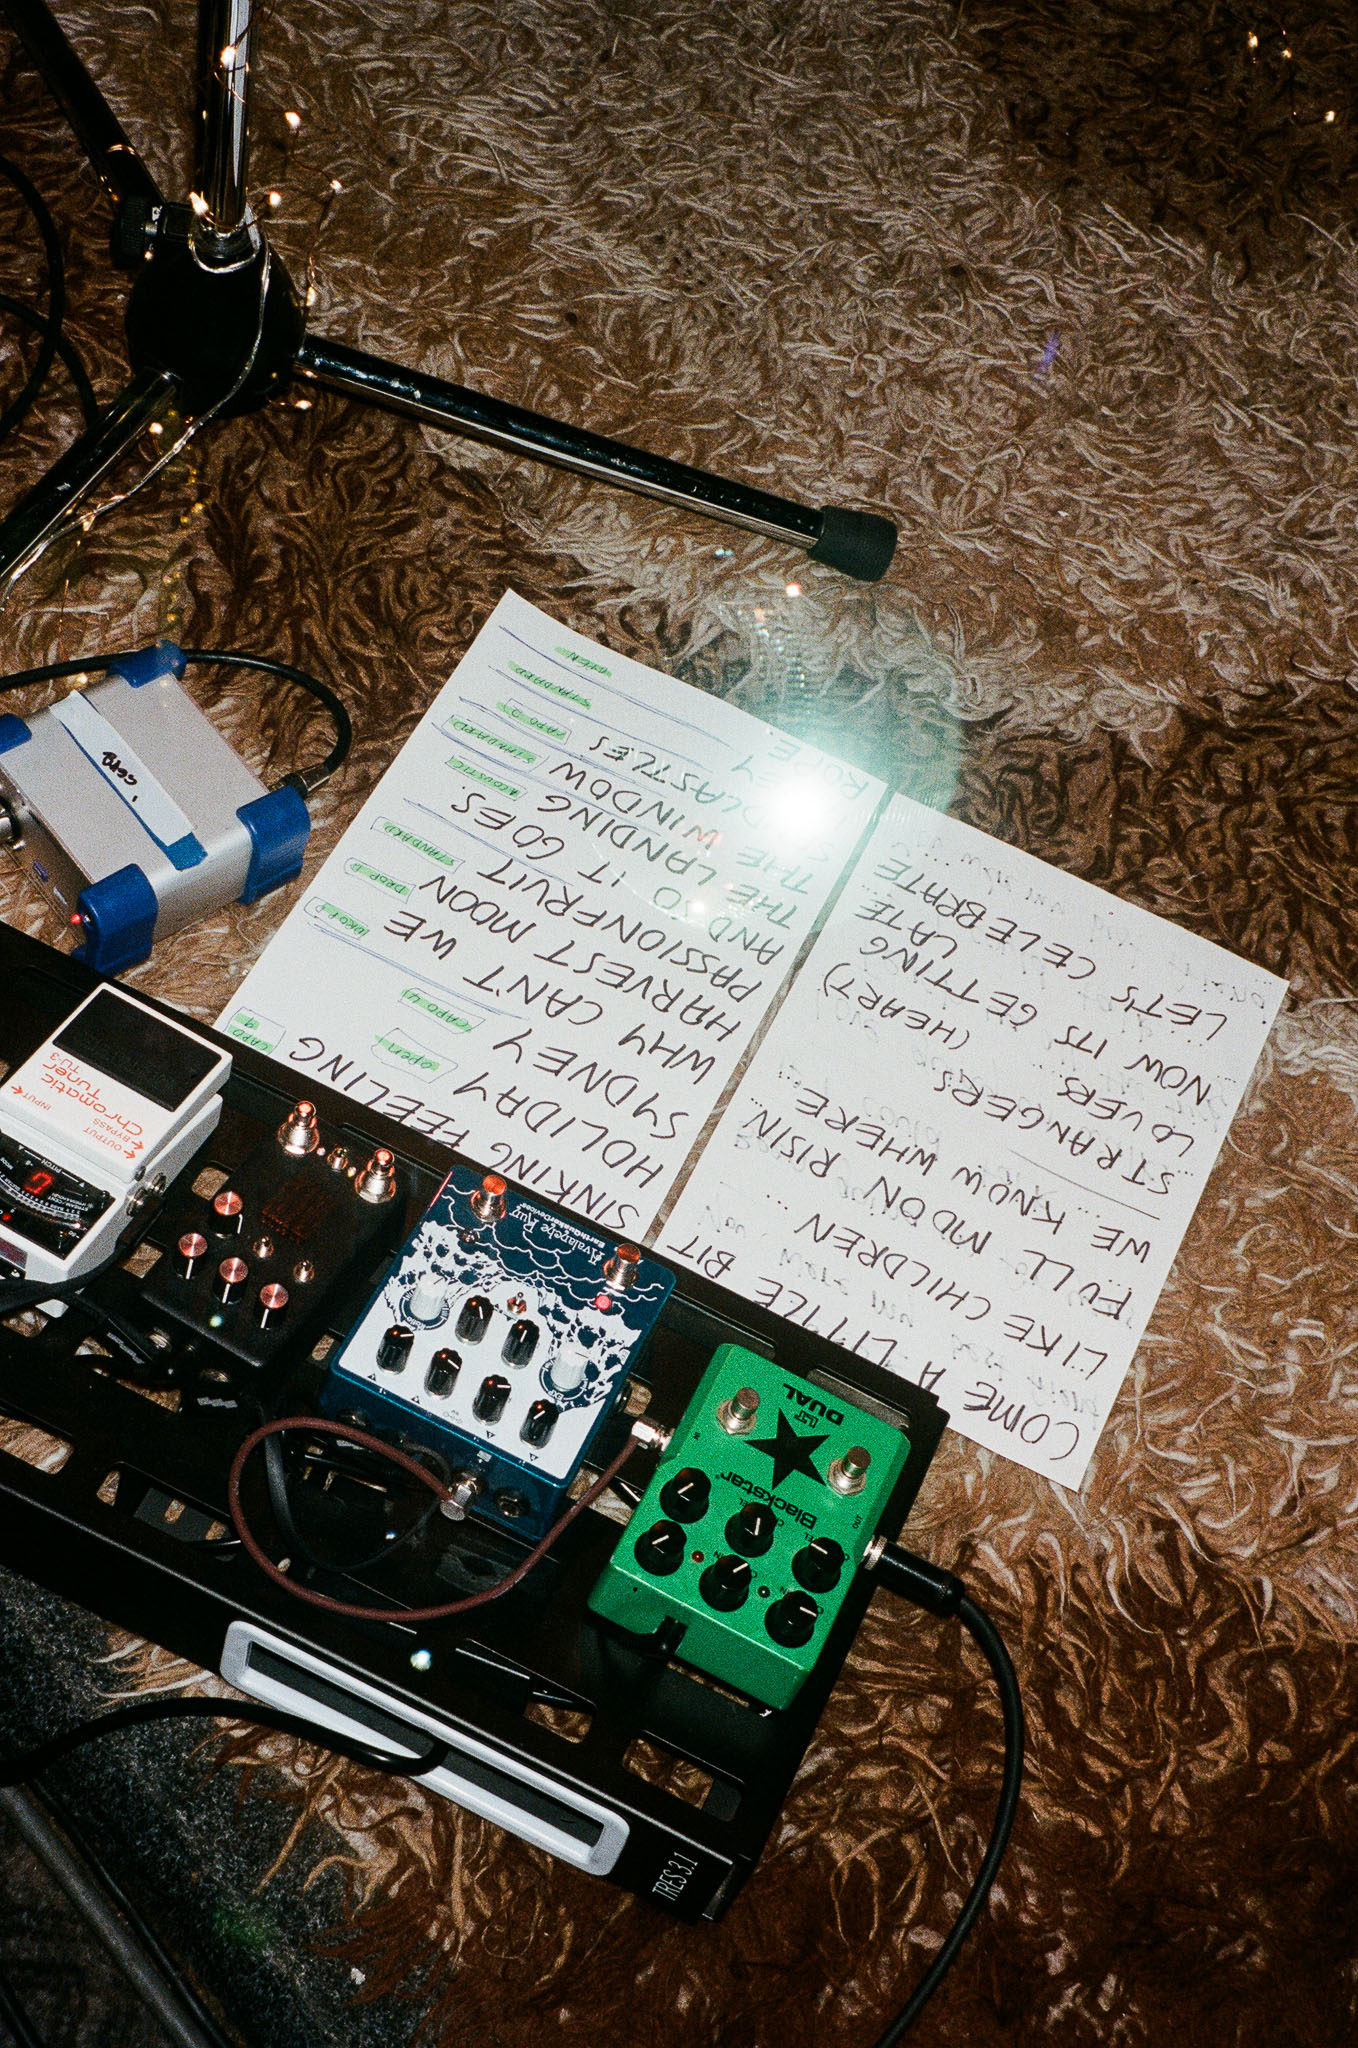 COME A LITTLE BIT
LIKE CHILDREN ...
FULL MOON RISIN
WE KNOW WHERE
STRANGERS
LOVERS (HEART)
NOW ITS GETTING LATE
LET'S CELEBRATE
SINKING FEELING CAPO 9
HOLIDAY open
SYDNEY CAPO 4
WHY CAN'T WE DROP D
HARVEST MOON DROP D
PASSIONFRUIT STANDARD
AND SO IT GOES.
THE LANDING ACOUSTIC
THE WINDOW STANDARD
CAPO 2
STANDARD
OPEN
Blackstar
LT
DUAL
OUT
IN
Avalanche Run
EarthQuaker Devices
EXP
OUTPUT
BYPASS
INPUT
Chromatic
Tuner
TU-3
TRES 3.1